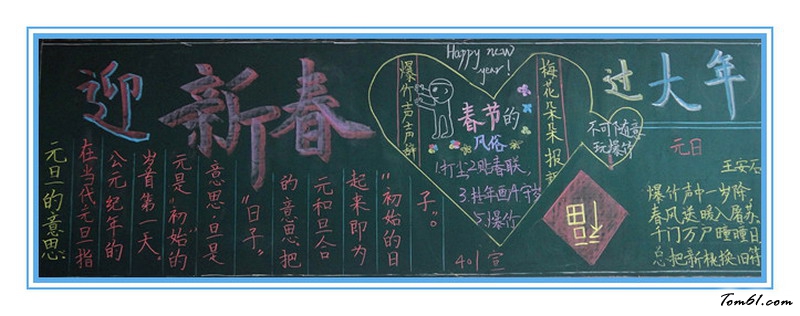 迎新春
元旦的意思:
在当代元旦指
公元纪年的
岁首第一天。
元是"初始的"
意思,旦是
"日子"
的意思。把
元和旦合
起来即为
"初始的日
子"。
401宣
Happy new
year!
爆竹声声辞
春节的
风俗
1.扫尘2贴春联,
3.挂年画4守岁
5.爆竹
梅花朵朵报
不可随意
玩爆竹
福
过大年
元日
王安石
爆竹声中一岁除
春风送暖入屠苏.
千门万户曈曈日
总把新桃换旧符
Tom61.com